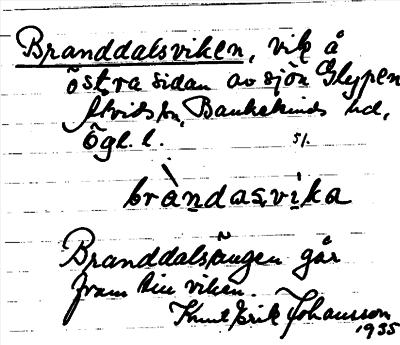 Branddalsviken, vik å
östra sidan av sjön Glypen
Åtvids sn, Bankekinds hd,
Ögl. l. 5/.
bràndasvíka
Branddalsängen går
fram till viken.
Knut Erik Johansson
1935